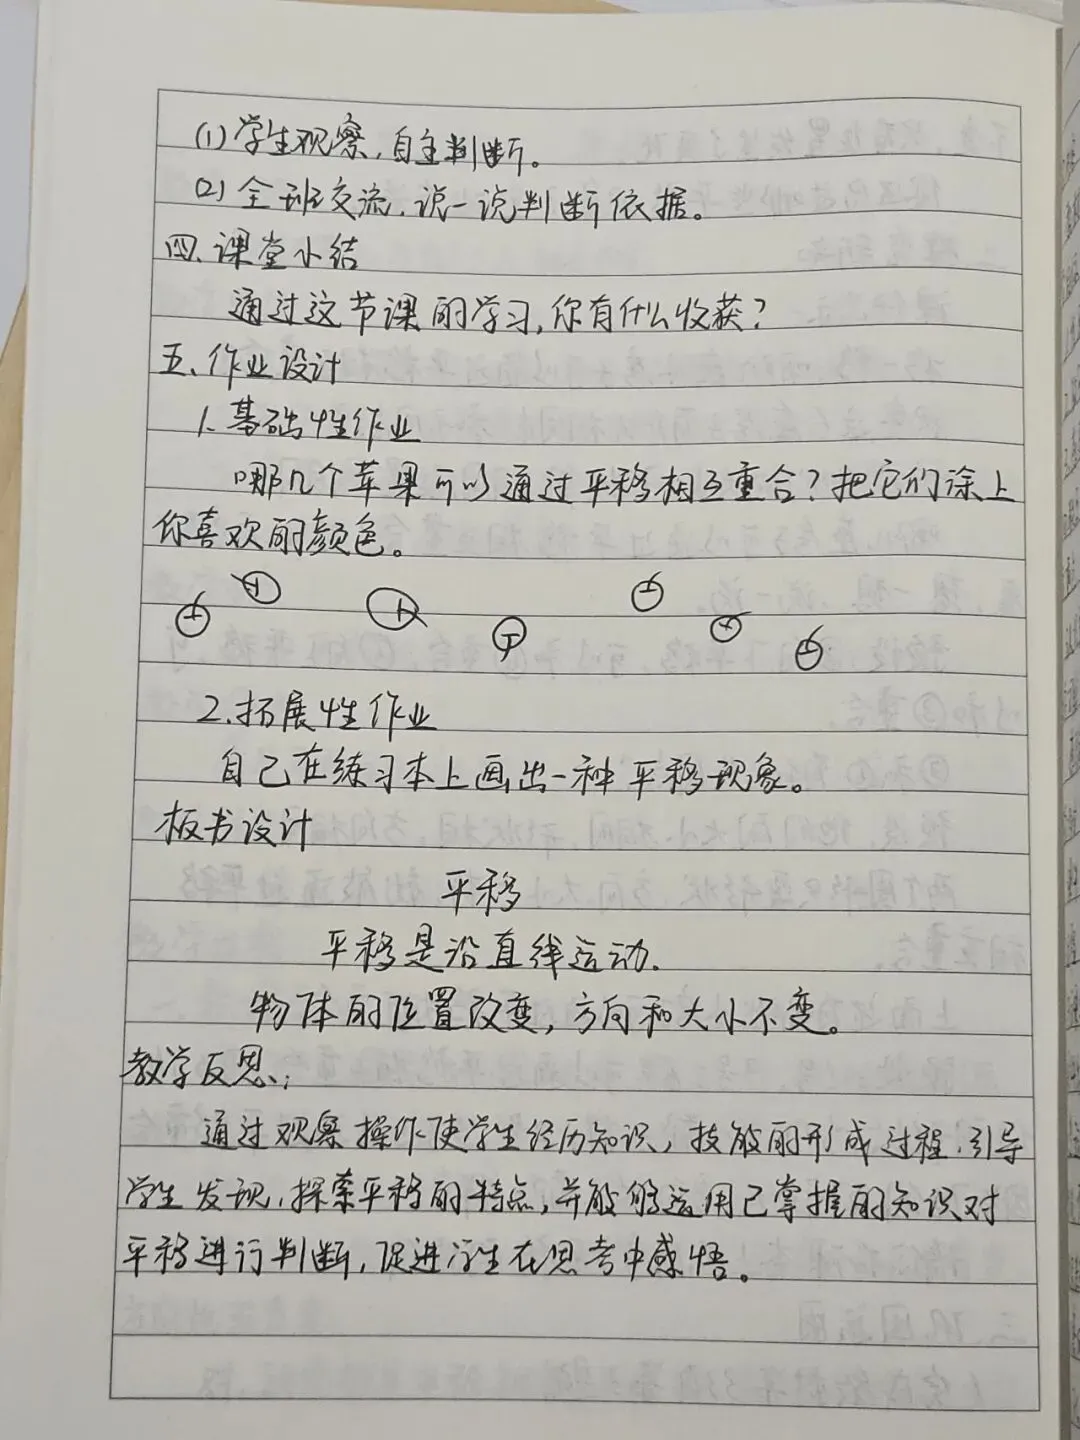 (1)学生观察,自主判断。
(2)全班交流,说一说判断依据。
四、课堂小结
通过这节课的学习,你有什么收获?
五、作业设计
1.基础性作业
哪几个苹果可以通过平移相互重合?把它们涂上
你喜欢的颜色。
2.拓展性作业
自己在练习本上画出一种平移现象。
板书设计
平移
平移是沿直线运动.
物体的位置改变,方向和大小不变。
教学反思:
通过观察操作使学生经历知识,技能的形成过程.引导
学生发现,探索平移的特点,并能够运用已掌握的知识对
平移进行判断,促进学生在思考中感悟。